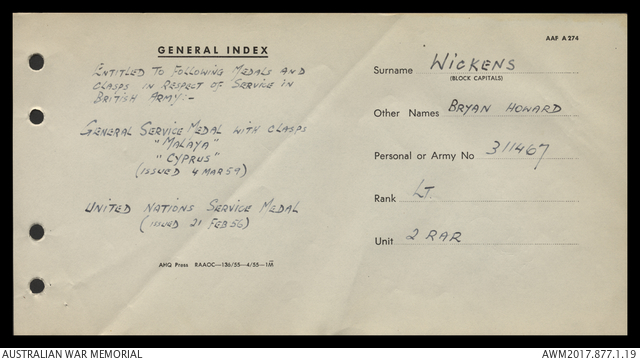 AAF A 274
GENERAL INDEX
ENTITLED TO FOLLOWING MEDALS AND
CLASPS IN RESPECT OF SERVICE IN
BRITISH ARMY:-
GENERAL SERVICE MEDAL WITH CLASPS
"MALAYA"
"CYPRUS"
(ISSUED 4 MAR 59)
UNITED NATIONS SERVICE MEDAL
(ISSUED 21 FEB 56)
AHQ Press RAAOC—136/55—4/55—1M
Surname WICKENS
(BLOCK CAPITALS)
Other Names BRYAN HOWARD
Personal or Army No 311467
Rank LT.
Unit 2 RAR
AUSTRALIAN WAR MEMORIAL
AWM2017.877.1.19